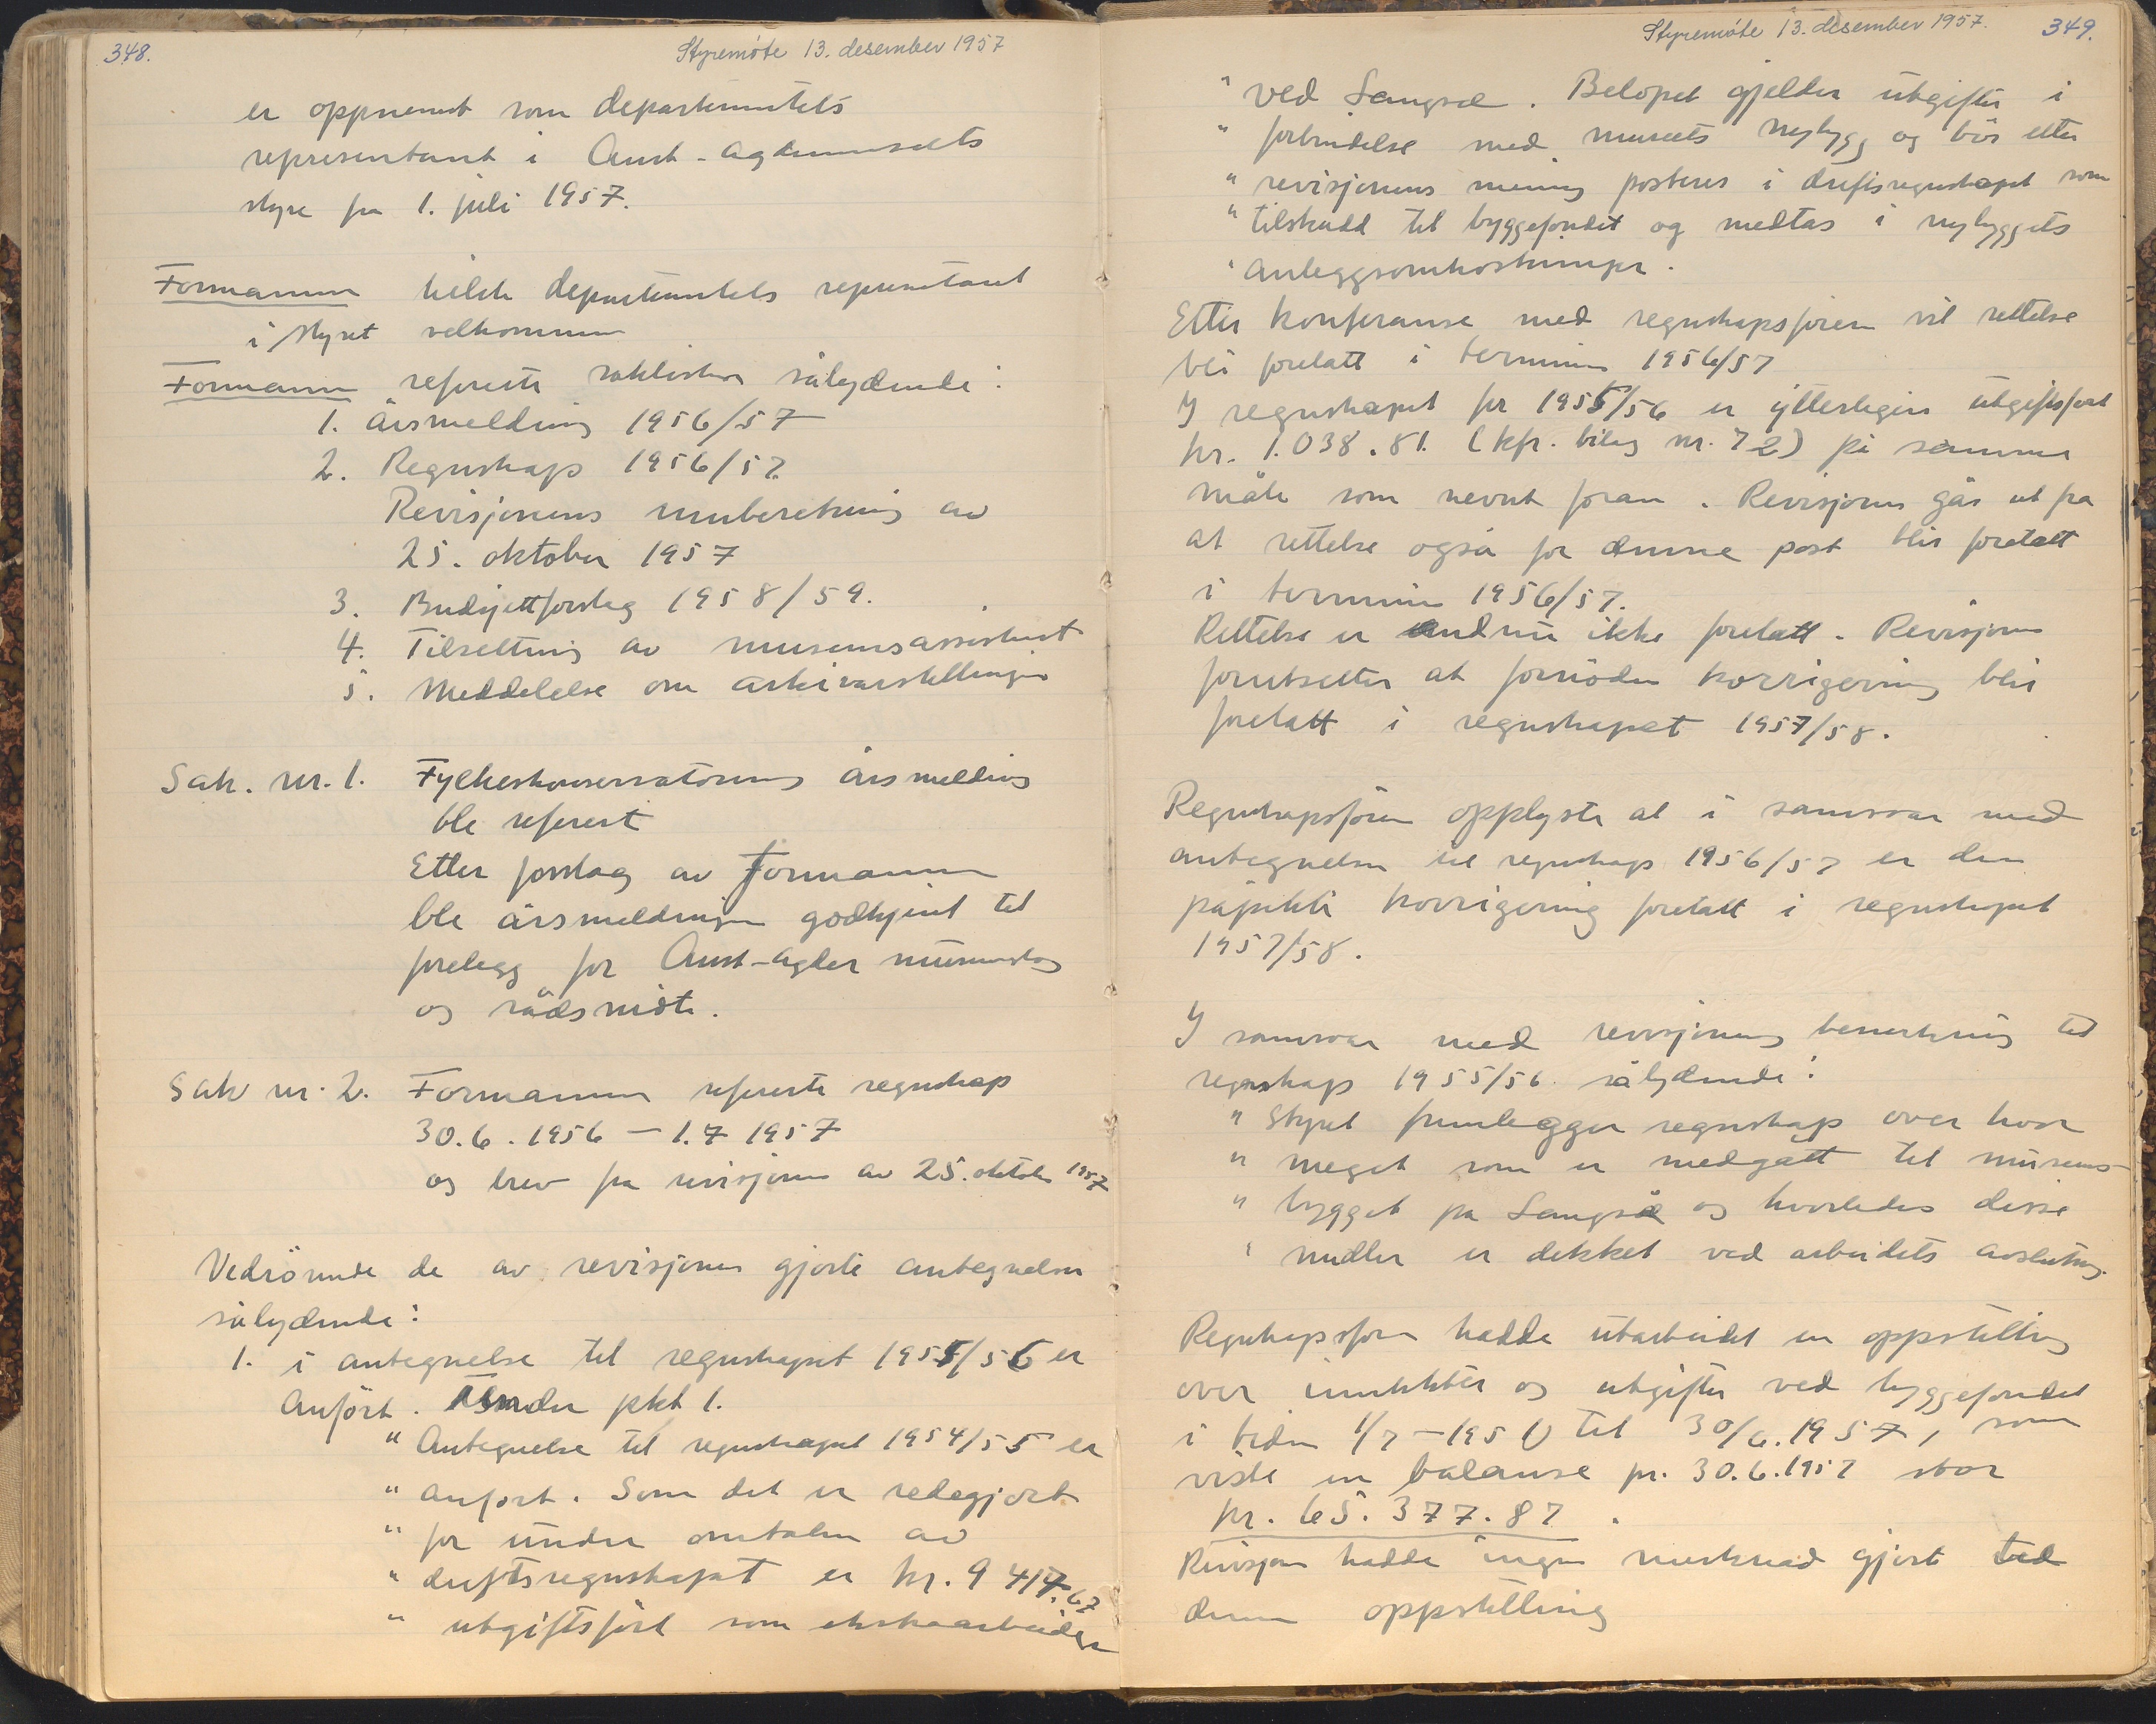 348.
Styremöte 13. desember 1957
er oppnevnt som departementets
representant i Aust-Agdermuseets
styre fra 1. juli 1957.
Formannen hilste departementets representant
i styret velkommen
Formannen refererte saklisten sålydende:
1. Årsmelding 1956/57
2. Regnskap 1956/57
Revisjonens innberetning av
25. oktober 1957
3. Budsjettforslag 1958/59.
4. Tilsetting av museumsassistent
5. Meddelelse om arkivarstillingen
Sak. nr. 1. Fylkeskonservatorens årsmelding
ble referert
Etter forslag av Formannen
ble årsmeldingen godkjent til
forelegg for Aust-Agder museumslag
og rådsmöte.
Sak nr. 2. Formannen refererte regnskap
30.6.1956 – 1.7 1957
og brev fra revisjonen av 25. oktober 1957
Vedrörende de av revisjonen gjorte antegnelser
sålydende:
1. i antegnelse til regnskapet 1955/56 er
anfört. Under pkt 1.
" Antegnelse til regnskapet 1954/55 er
" anfört. Som det er redegjort
" for under omtalen av
" driftsregnskapet er kr. 9 417.67
" utgiftsfört som ekstraarbeider
Styremöte 13. desember 1957.
349.
" ved Langsæ. Belöpet gjelder utgifter i
" forbindelse med museets nybygg og bör etter
" revisjonens mening posteres i driftsregnskapet som
" tilskudd til byggefondet og medtas i nybyggets
" anleggsomkostninger.
Etter konferanse med regnskapsföreren vil rettelse
bli foretatt i terminen 1956/57
I regnskapet for 1955/56 er ytterligere utgiftsfört
kr. 1.038.81. (kfr. bilag nr. 72) på samme
måte som nevnt foran. Revisjonen går ut fra
at rettelse også for denne post blir foretatt
i terminen 1956/57.
Rettelse er endnu ikke foretatt. Revisjonen
forutsetter at fornöden korrigering blir
foretatt i regnskapet 1957/58.
Regnskapsföreren opplyste at i samsvar med
antegnelsen til regnskap 1956/57 er den
påpekte korrigering foretatt i regnskapet
1957/58.
I samsvar med revisjonens bemerkning til
regnskap 1955/56 sålydende:
" Styret fremlegger regnskap over hvor
" meget som er medgått til museums-
" bygget på Langsæ og hvorledes disse
" midler er dekket ved arbeidets avslutning.
Regnskapsföreren hadde utarbeidet en oppstilling
over inntekter og utgifter ved byggefondet
i tiden 1/7 – 195 til 30/6.1957, som
viste en balanse pr. 30.6.1957 stor
kr. 65.377.87.
Revisjonen hadde ingen merknad gjort til
denne oppstilling